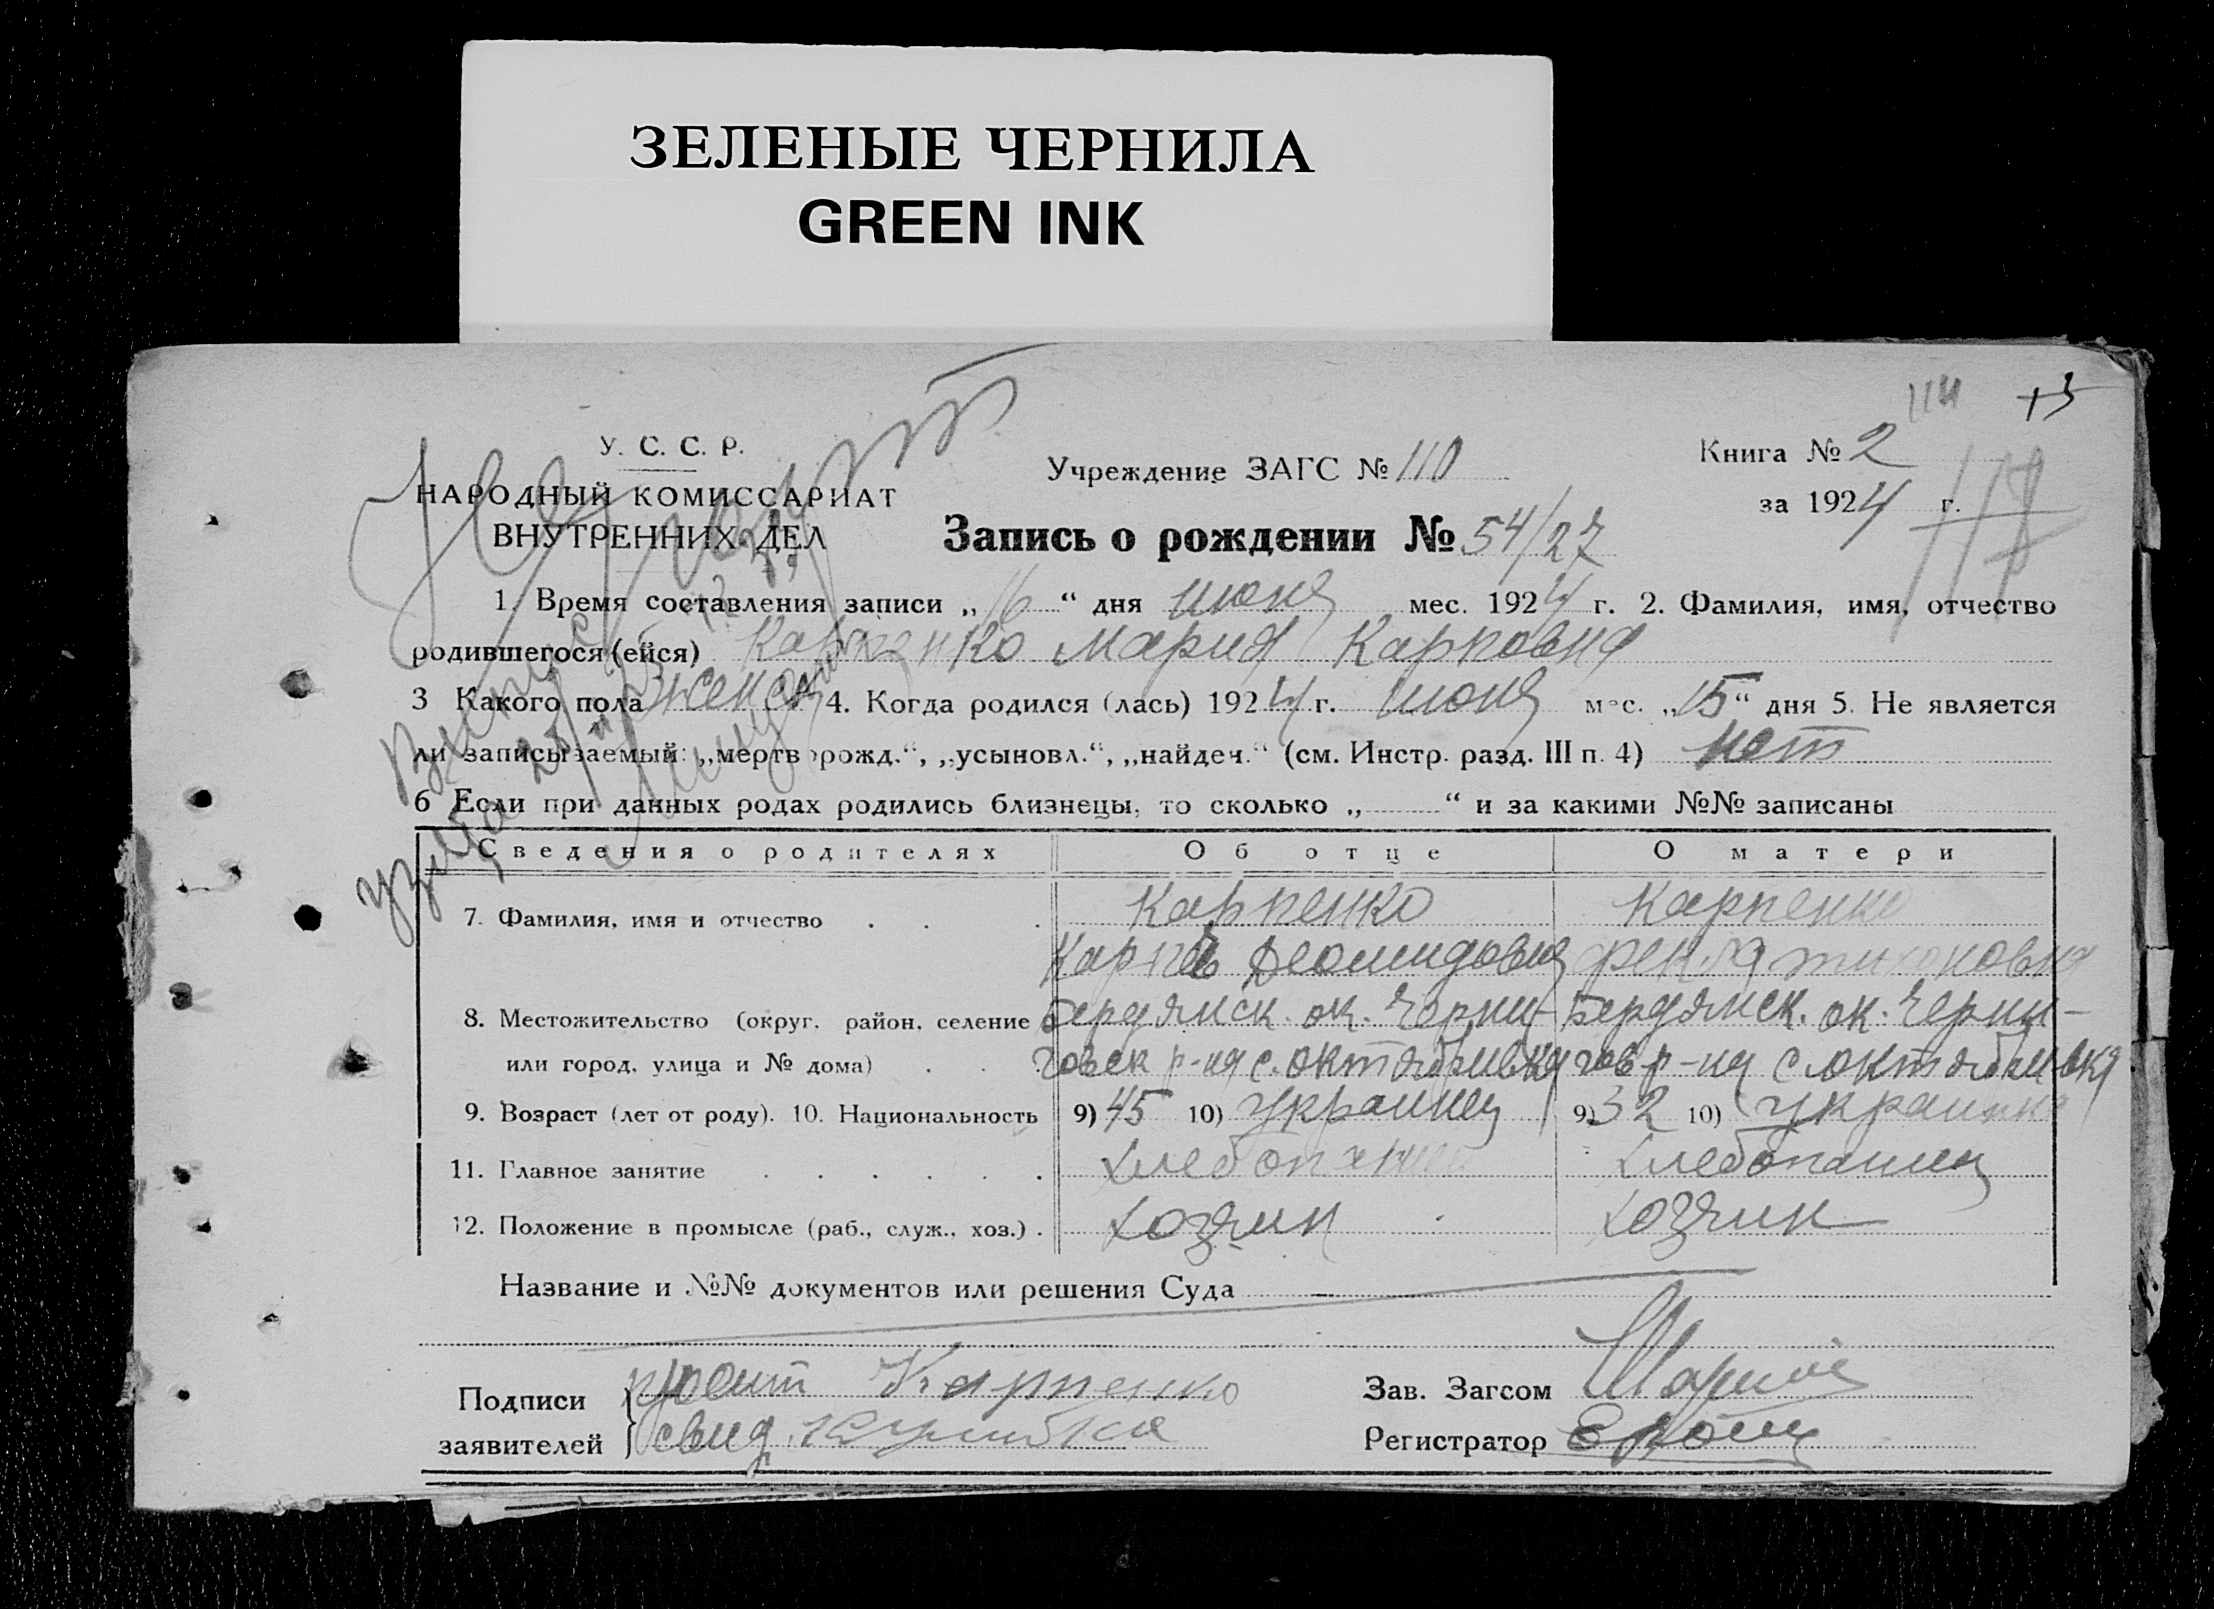 ЗЕЛЕНЫЕ ЧЕРНИЛА
GREEN INK
114 + 5
У. С. С. Р.
НАРОДНЫЙ КОМИССАРИАТ
ВНУТРЕННИХ ДЕЛ
Учреждение ЗАГС № 110
Книга № 2
за 1924 г.
Запись о рождении № 54/27
1. Время составления записи „16“ дня июня мес. 1924 г. 2. Фамилия, имя, отчество
родившегося (ейся) Карпенко Мария Карповна
3 Какого пола женск 4. Когда родился (лась) 1924 г. июня мес. „15“ дня 5. Не является
ли записываемый: „мертворожд.“, „усыновл.“, „найден.“ (см. Инстр. разд. III п. 4) нет
6 Если при данных родах родились близнецы, то сколько „ “ и за какими №№ записаны
Сведения о родителях Об отце О матери
7. Фамилия, имя и отчество Карпенко Карпенко
Карпо Фекла
8. Местожительство (округ, район, селение Бердянск. ок. Черни- Бердянск. ок. Черни-
или город, улица и № дома) говск р-на с. Октябрьвка гов р-на с. Октябрьвка
9. Возраст (лет от роду). 10. Национальность 9) 45 10) украинец 9) 32 10) украинка
11. Главное занятие хлебопашец хлебопашец
12. Положение в промысле (раб., служ., хоз.) хозяин хозяин
Название и №№ документов или решения Суда —
Подписи Карпенко Зав. Загсом
заявителей свид. Регистратор